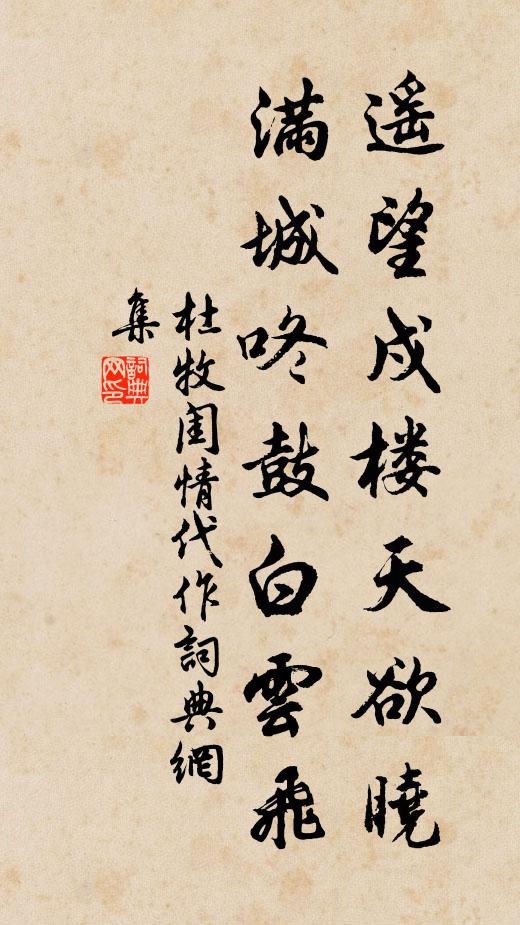 遥望戍楼天欲曉
滿城咚鼓白雲飛
杜牧閨情代作詞典網
集
詞典网印